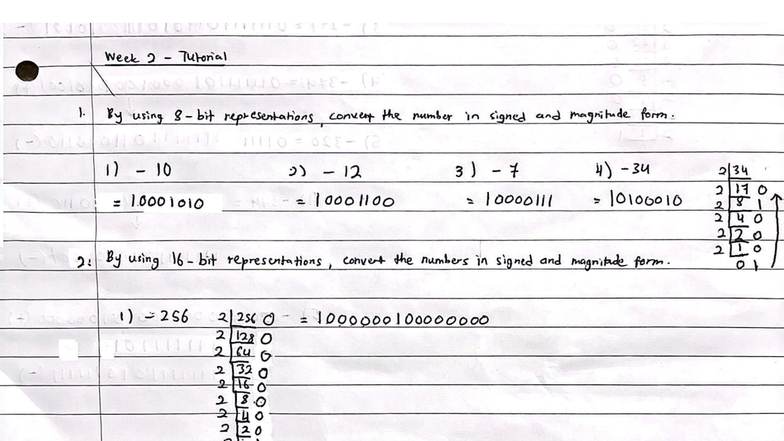 Week 2 - Tutorial
1. By using 8-bit representations, convert the number in signed and magnitude form.
1) - 10 2) - 12 3) - 7 4) -34
= 10001010 = 10001100 = 10000111 = 10100010
2 34
2 17 0
2 8 1
2 4 0
2 2 0
2 1 0
0 1
2. By using 16-bit representations, convert the numbers in signed and magnitude form.
1) - 256 2 256 0 = 1000000100000000
2 128 0
2 64 0
2 32 0
2 16 0
2 8 0
2 4 0
2 2 0